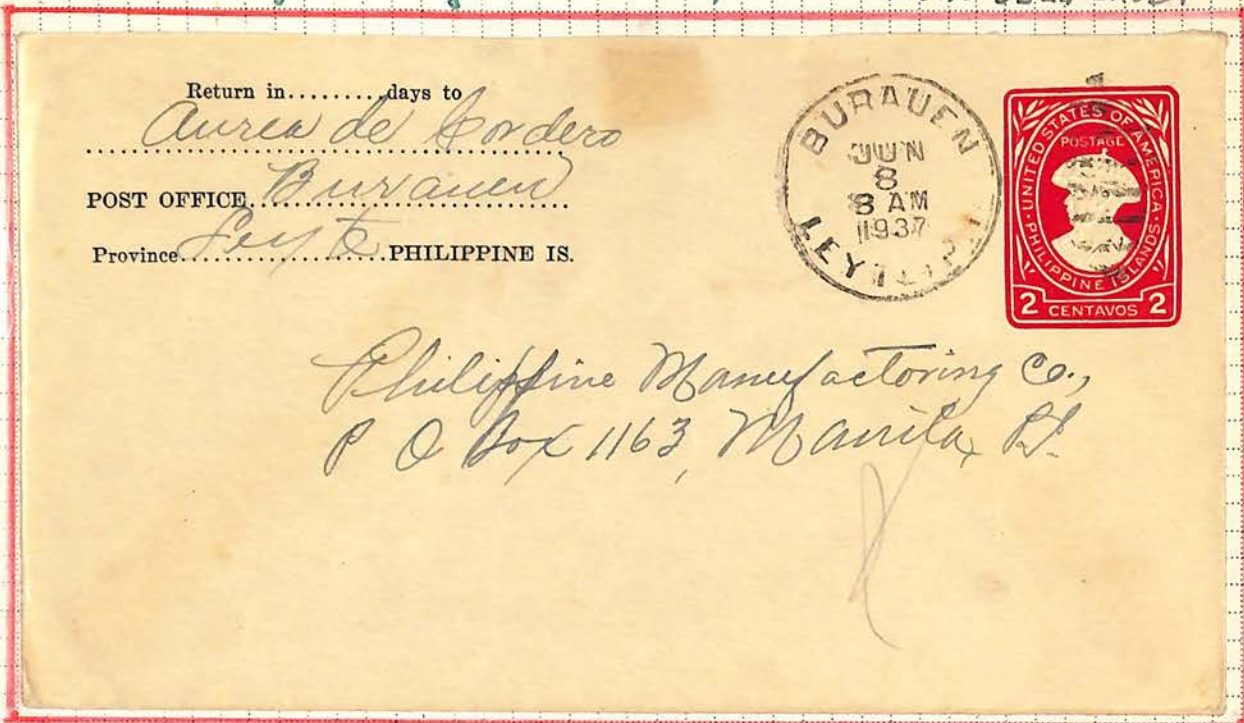 Return in.........days to
Aurea de Cordero
POST OFFICE Burauen
Province Leyte PHILIPPINE IS.
BURAUEN
JUN
8
8 AM
1937
LEYTE, P.I.
UNITED STATES OF AMERICA
POSTAGE
PHILIPPINE ISLANDS
2 CENTAVOS 2
Philippine Manufactoring Co.,
P O Box 1163, Manila, P.I.